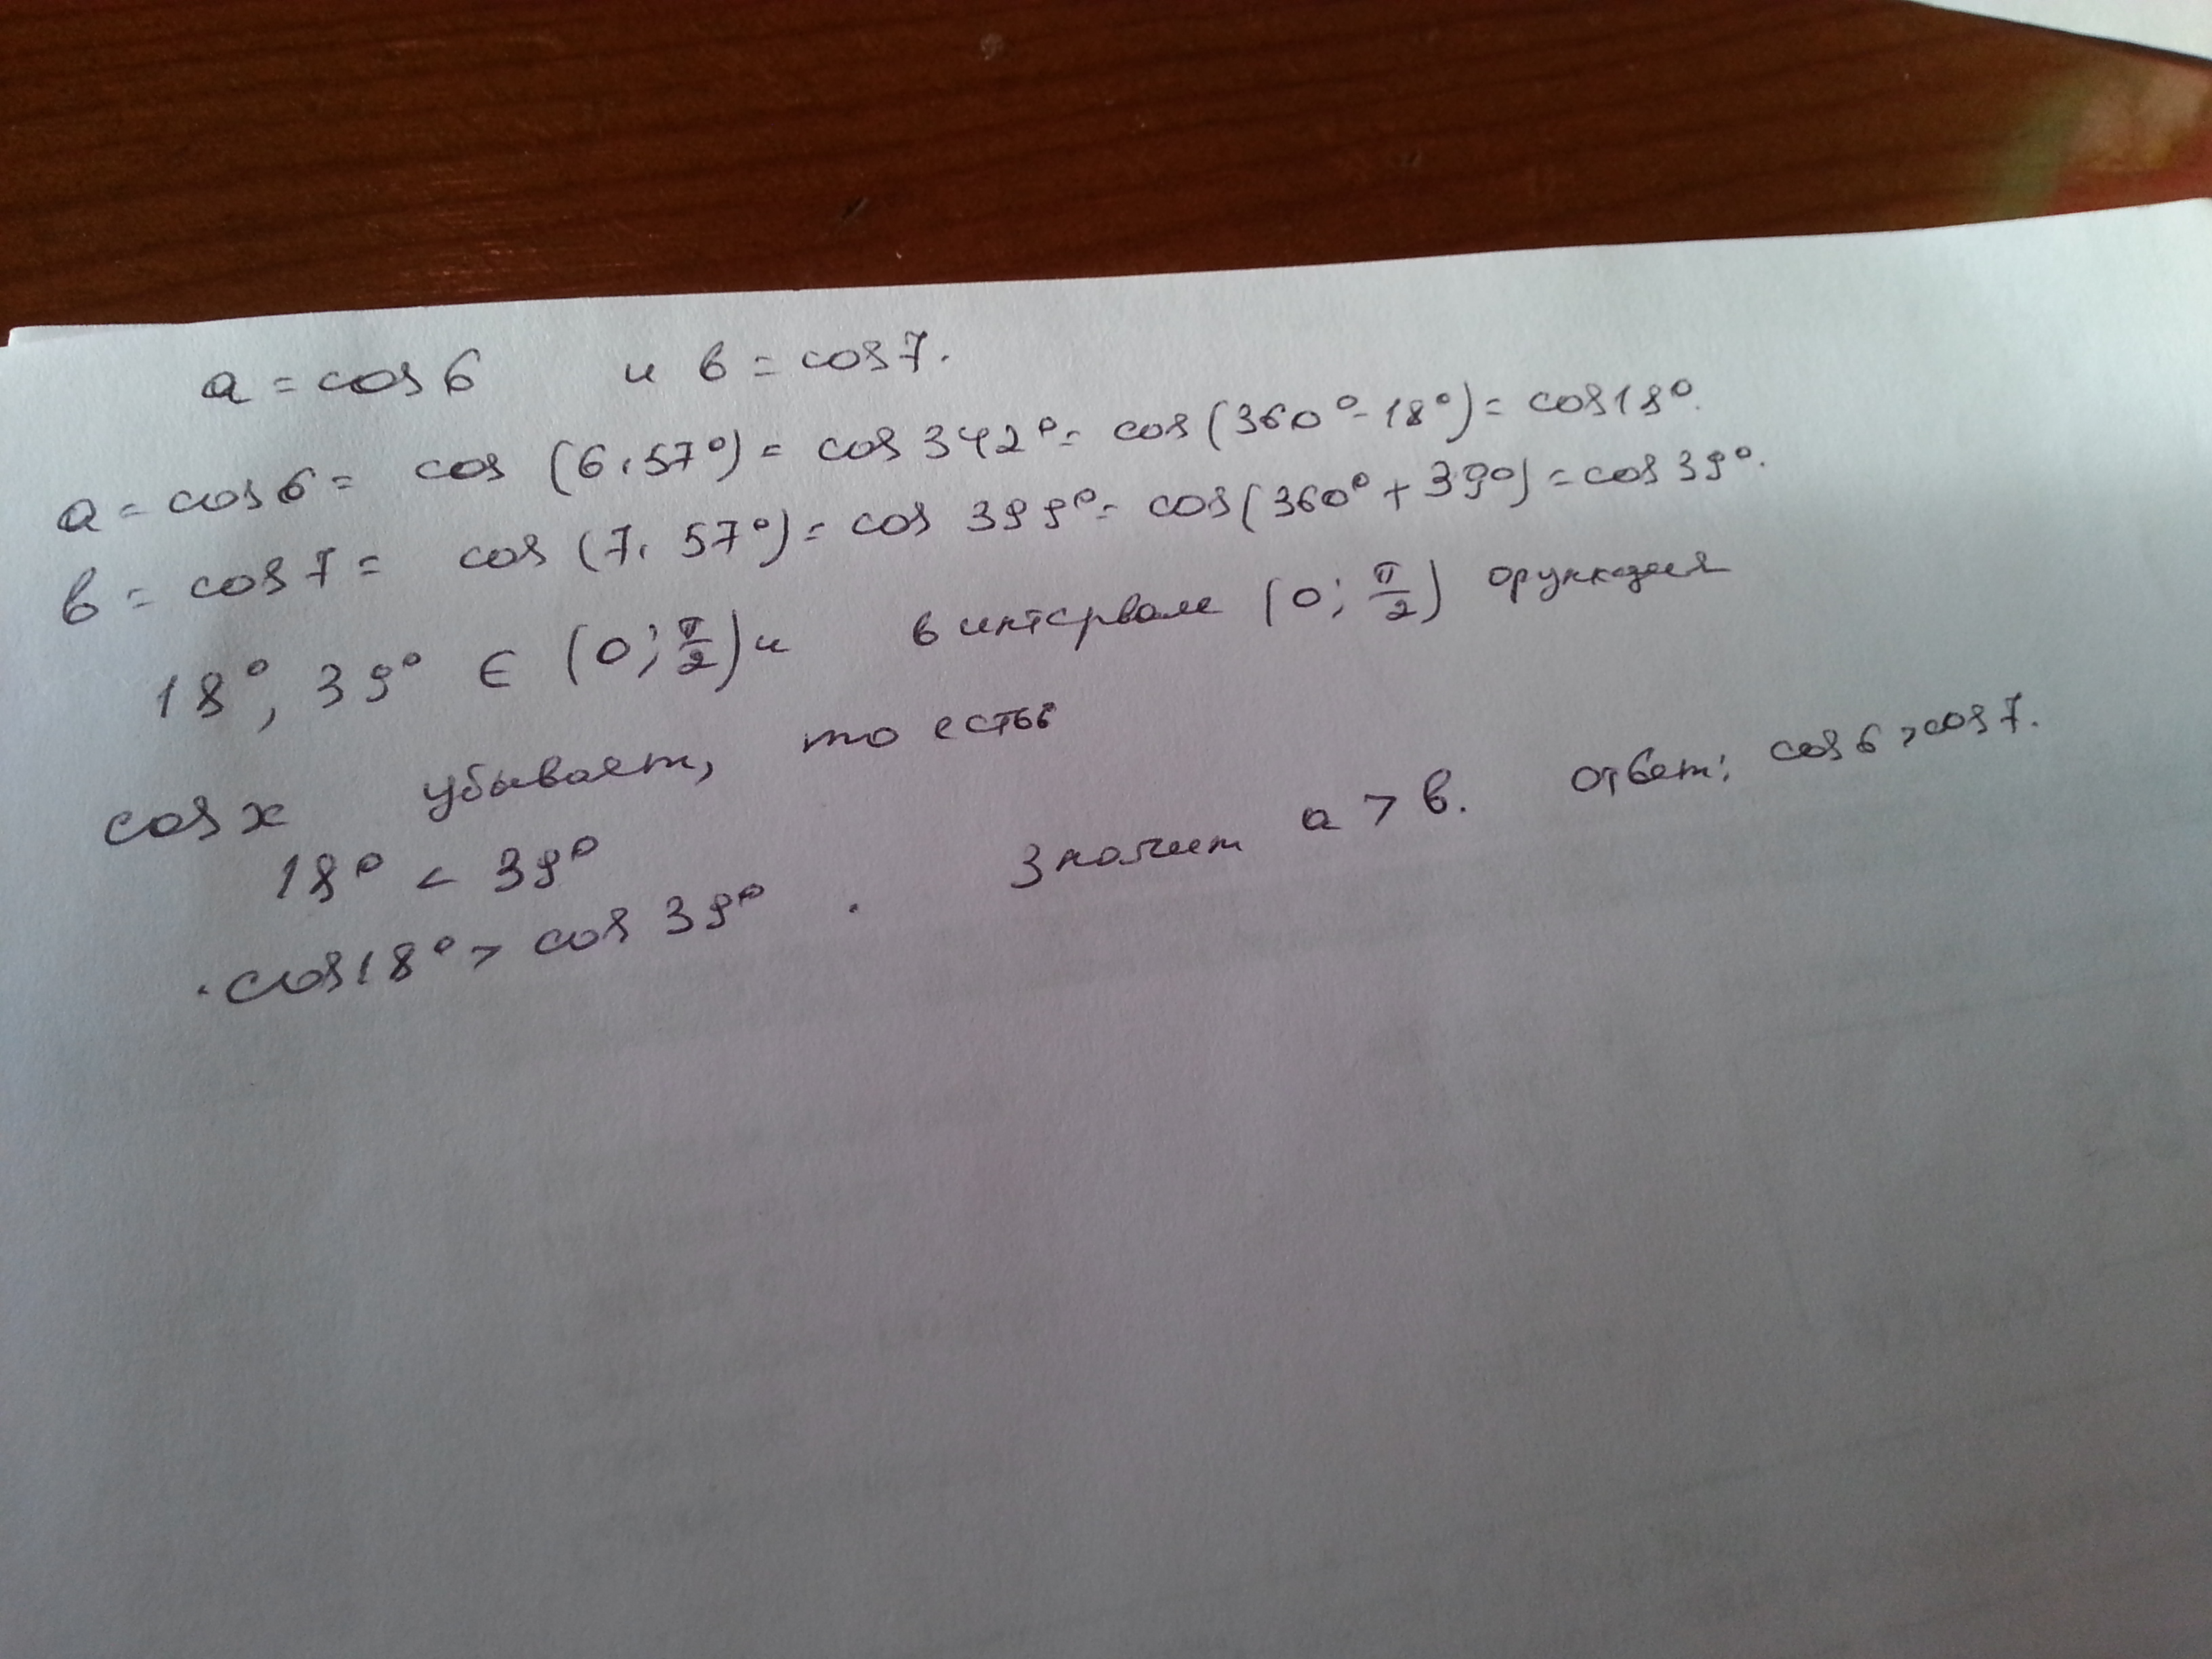 a = cos 6 и b = cos 7.
a = cos 6 = cos (6 · 57°) = cos 342° = cos (360° - 18°) = cos 18°.
b = cos 7 = cos (7 · 57°) = cos 399° = cos (360° + 39°) = cos 39°.
18°, 39° ∈ (0; π/2) и в интервале (0; π/2) функция
cos x убывает, то есть
18° < 39°
cos 18° > cos 39°. Значит a > b. Ответ: cos 6 > cos 7.